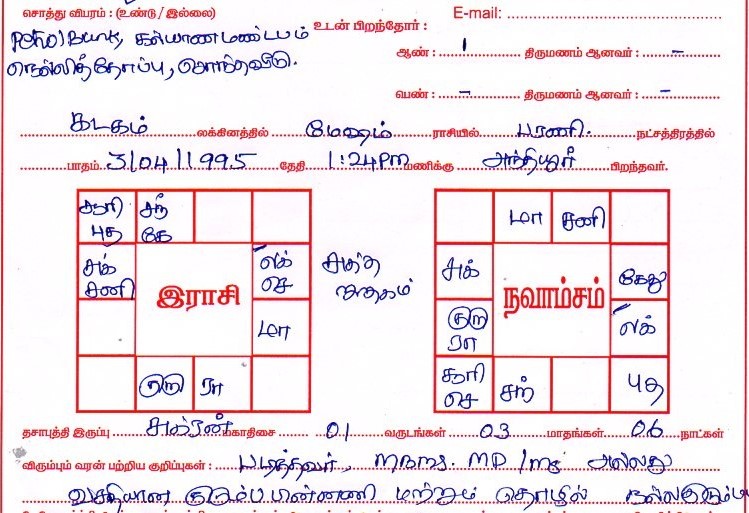 சொத்து விபரம் : (உண்டு / இல்லை) E-mail:
உடன் பிறந்தோர் :
Petrol Bunk, கல்யாண மண்டபம்
ஆண் : 1 திருமணம் ஆனவர் : –
தென்னந்தோப்பு, சொந்தவீடு.
பெண் : – திருமணம் ஆனவர் : –
கடகம் லக்கினத்தில் மேஷம் ராசியில் பரணி. நட்சத்திரத்தில்
பாதம் 3/04/1995 தேதி 1:24PM மணிக்கு அந்தியூர் பிறந்தவர்.
சூரி சந் மா சனி
புத கே
சுக் லக் சுத்த சுக் கேது
சனி இராசி செ ஜாதகம் நவாம்சம்
மா குரு லக்
ரா
குரு ரா சூரி சந் புத
செ
தசாபுத்தி இருப்பு சுக்ரன் மகாதிசை 01 வருடங்கள் 03 மாதங்கள் 06 நாட்கள்
விரும்பும் வரன் பற்றிய குறிப்புகள் : படித்தவர், MBBS. MD / MS அல்லது
வசதியான குடும்ப பின்னணி மற்றும் தொழில்